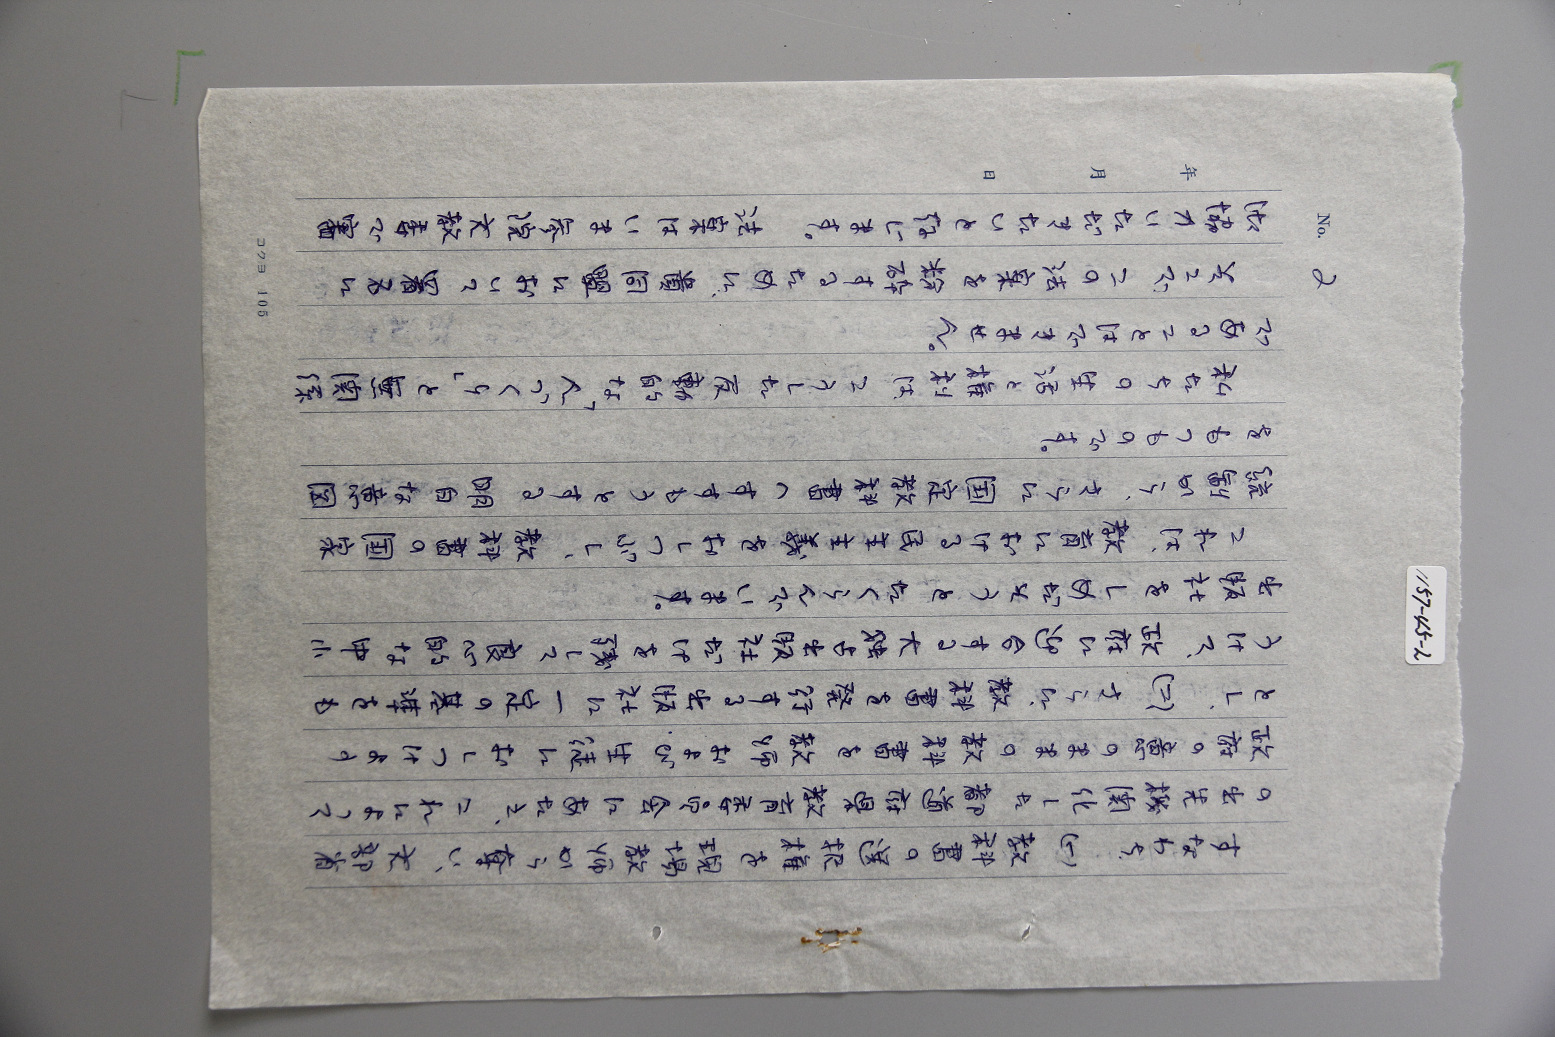 No. 2
年 月 日
すなわち、(一)教科書の選択権を現場教師から奪い、文部省
の出先機関化した都道府県教育委員会にあたえ、これによって
政府の意のままの教科書を教師および生徒におしつけよう
とし、(二)さらに、教科書を発行する出版社に一定の基準をも
うけて、政府に迎合する大独占出版社だけを残して良心的な中小
出版社をしめだそうとたくらんでいます。
これは、教育における民主主義をおしつぶし、教科書の国家
統制から、さらに国定教科書へすすもうとする明白な意図
をもつものです。
私たちの生活と権利は、こうした反動的な「人づくり」と無関係
であることはできません。
そこで、この法案を粉砕するために、貴同盟において署名に
御協力いただきたいと存じます。法案はいま参院文教委で審
コクヨ 105
1157-45-2